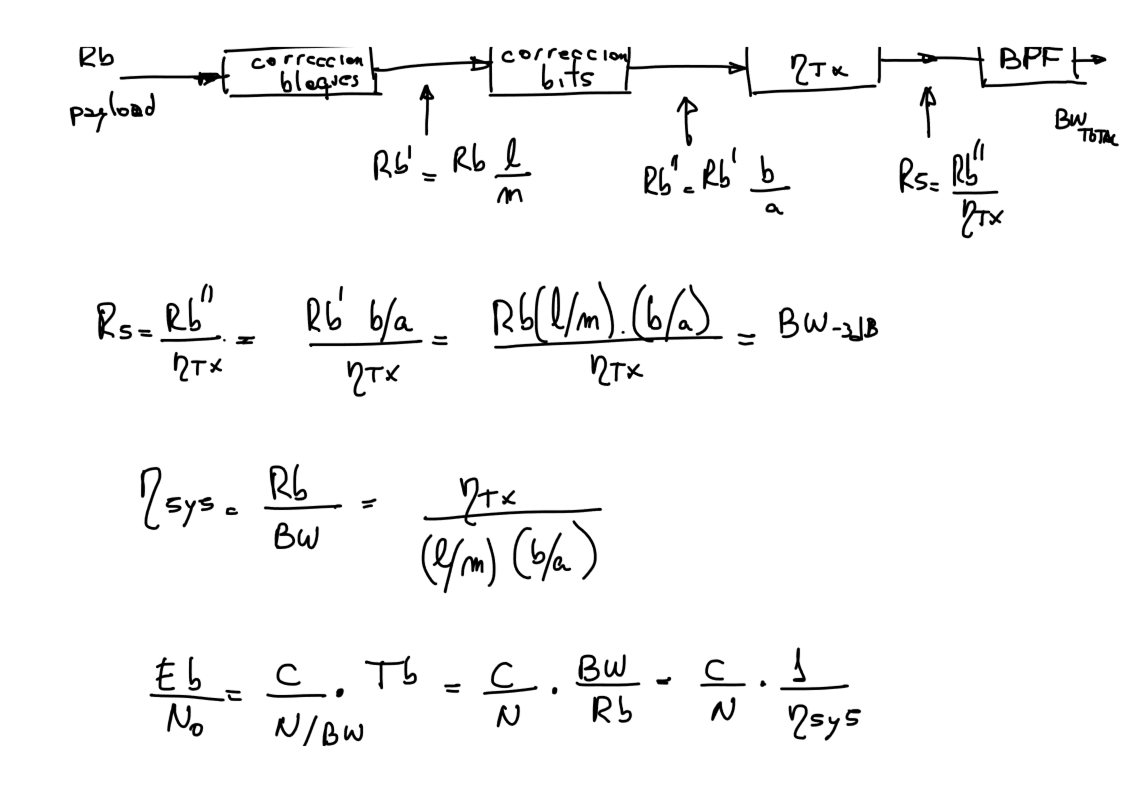 Rb
payload
correccion
bloques
correccion
bits
ηTx
BPF
BW TOTAL
Rb' = Rb l/m
Rb'' = Rb' b/a
Rs = Rb''/ηTx
Rs = Rb''/ηTx = Rb' b/a / ηTx = Rb(l/m).(b/a) / ηTx = BW-3dB
ηsys = Rb/BW = ηTx / (l/m) (b/a)
Eb/No = C/N/BW · Tb = C/N · BW/Rb = C/N · 1/ηsys